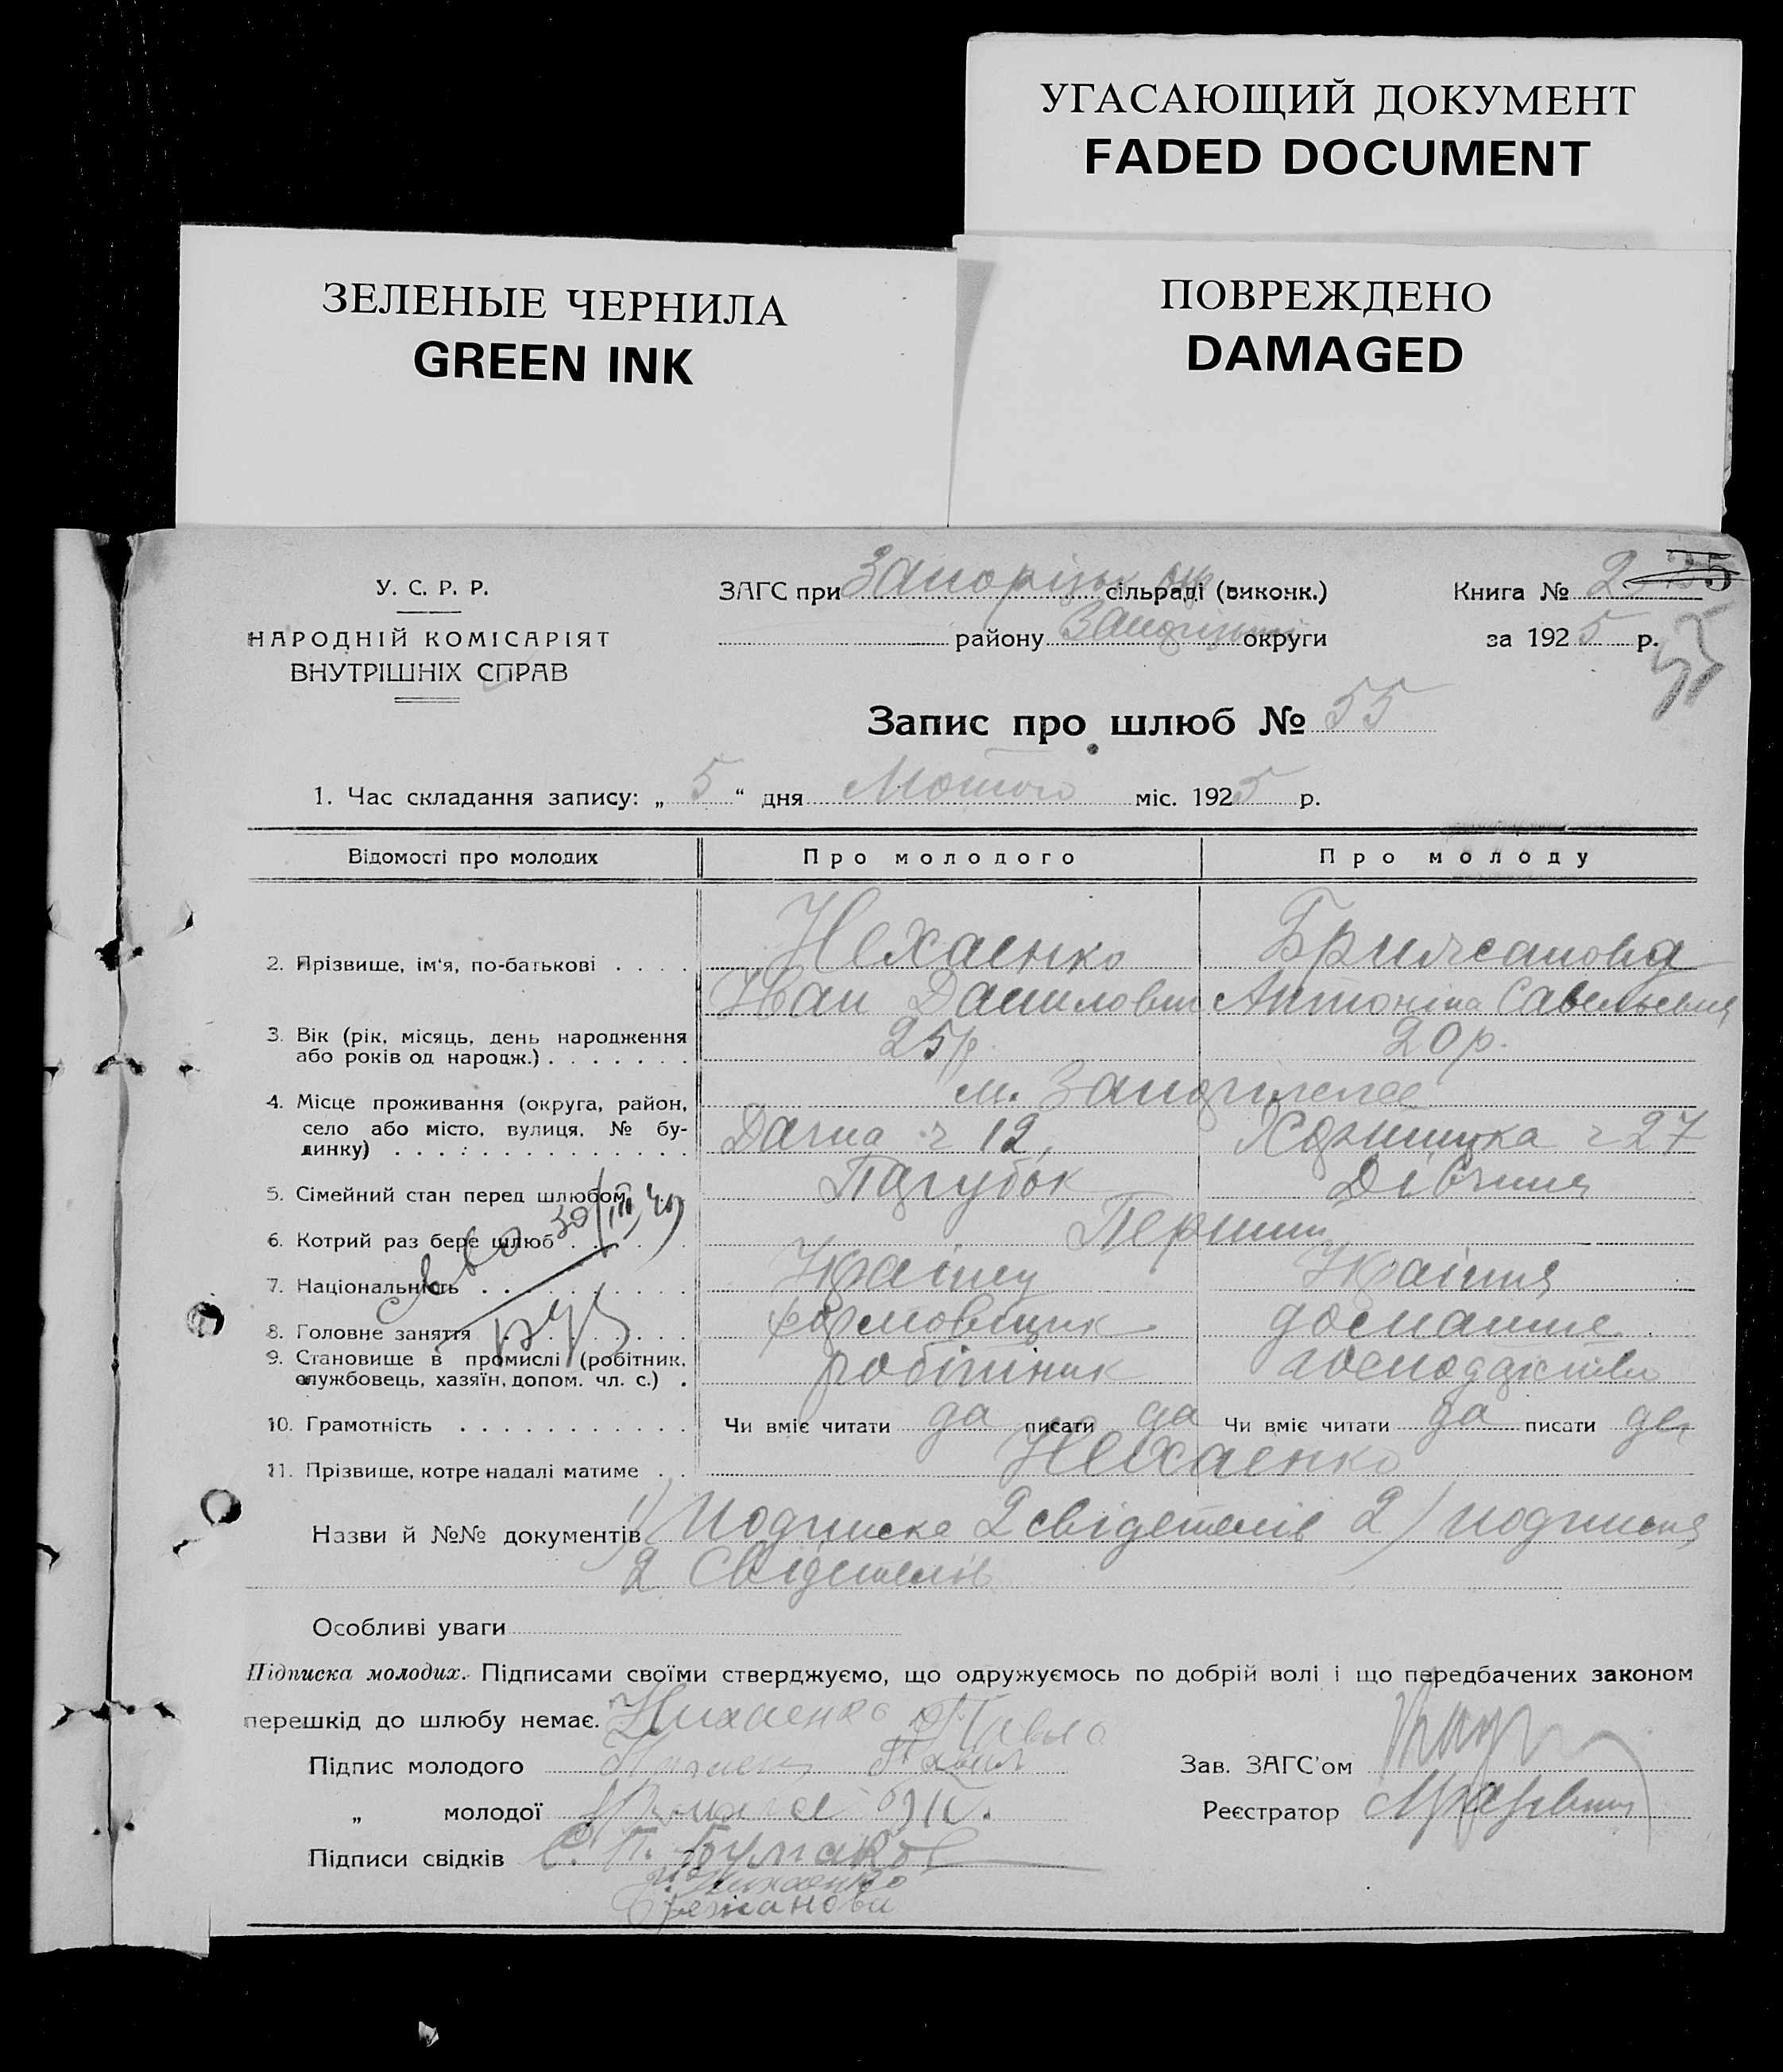 УГАСАЮЩИЙ ДОКУМЕНТ
FADED DOCUMENT
ЗЕЛЕНЫЕ ЧЕРНИЛА
GREEN INK
ПОВРЕЖДЕНО
DAMAGED
У. С. Р. Р.
НАРОДНІЙ КОМІСАРІЯТ
ВНУТРІШНІХ СПРАВ
ЗАГС при Запоріжск окр сільраді (виконк.)
району округи
Книга № 2 35
за 1925 р.
55
Запис про шлюб № 55
1. Час складання запису: „ 5 “ дня Лютого міс. 1925 р.
Відомості про молодих Про молодого Про молоду
2. Прізвище, ім'я, по-батькові Нехаенко
Іван Данилович Антоніна Савельевна
3. Вік (рік, місяць, день народження
або років од народж.) 25 р. 20 р.
4. Місце проживання (округа, район, м. Запоріжже
село або місто, вулиця, № бу-
динку) ч 12, ч 27
5. Сімейний стан перед шлюбом Парубок Дівчина
6. Котрий раз бере шлюб Перший
7. Національність
8. Головне заняття формовщик домашне
9. Становище в промислі (робітник,
службовець, хазяїн, допом. чл. с.) робітник господарство
10. Грамотність Чи вміє читати да писати да Чи вміє читати да писати да
11. Прізвище, котре надалі матиме Нехаенко
Назви й №№ документів 1) Подписка 2 свідетелів 2) подписка
2 свідетелів
Особливі уваги
Підписка молодих. Підписами своїми стверджуємо, що одружуємось по добрій волі і що передбачених законом
перешкід до шлюбу немає. Нихаенко Павло
Підпис молодого
„ молодої
Зав. ЗАГС'ом
Реєстратор
Підписи свідків С. П.